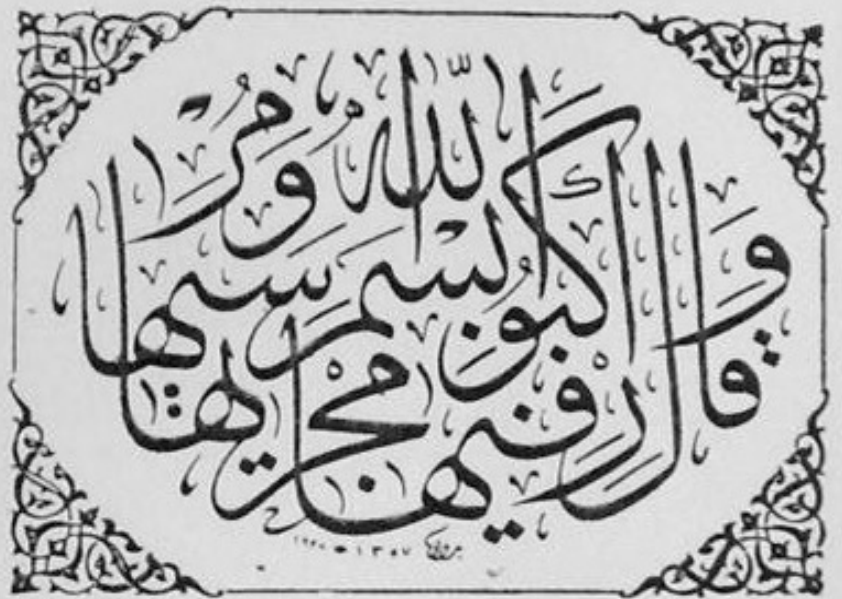 وَقَالَ ارْكَبُوا فِيهَا بِسْمِ اللّٰهِ مَجْريٰهَا وَمُرْسَيٰهَا
١٣٥٧